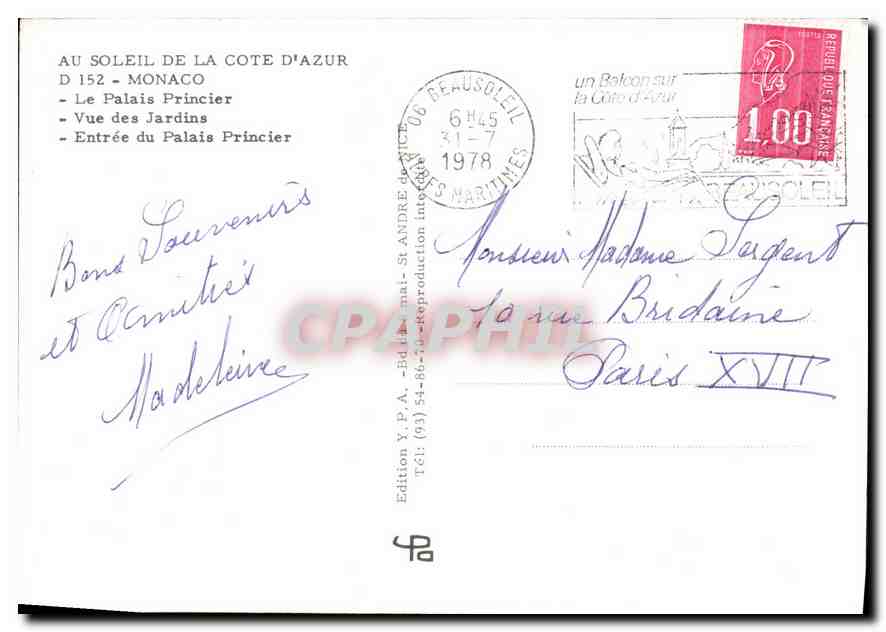 AU SOLEIL DE LA COTE D'AZUR
D 152 - MONACO
- Le Palais Princier
- Vue des Jardins
- Entrée du Palais Princier
Bons Souvenirs
et Amitiés
Madeleine
Edition Y.P.A. - Bd du mai - St ANDRE de NICE
Tél: (93) 54-86-70 - Reproduction interdite
06 BEAUSOLEIL
6H45
31-7
1978
ALPES MARITIMES
un Balcon sur
la Côte d'Azur
BEAUSOLEIL
REPUBLIQUE FRANÇAISE
1,00
POSTES
Monsieur Madame Sergent
10 rue Bridaine
Paris XVII
CPAPHIL